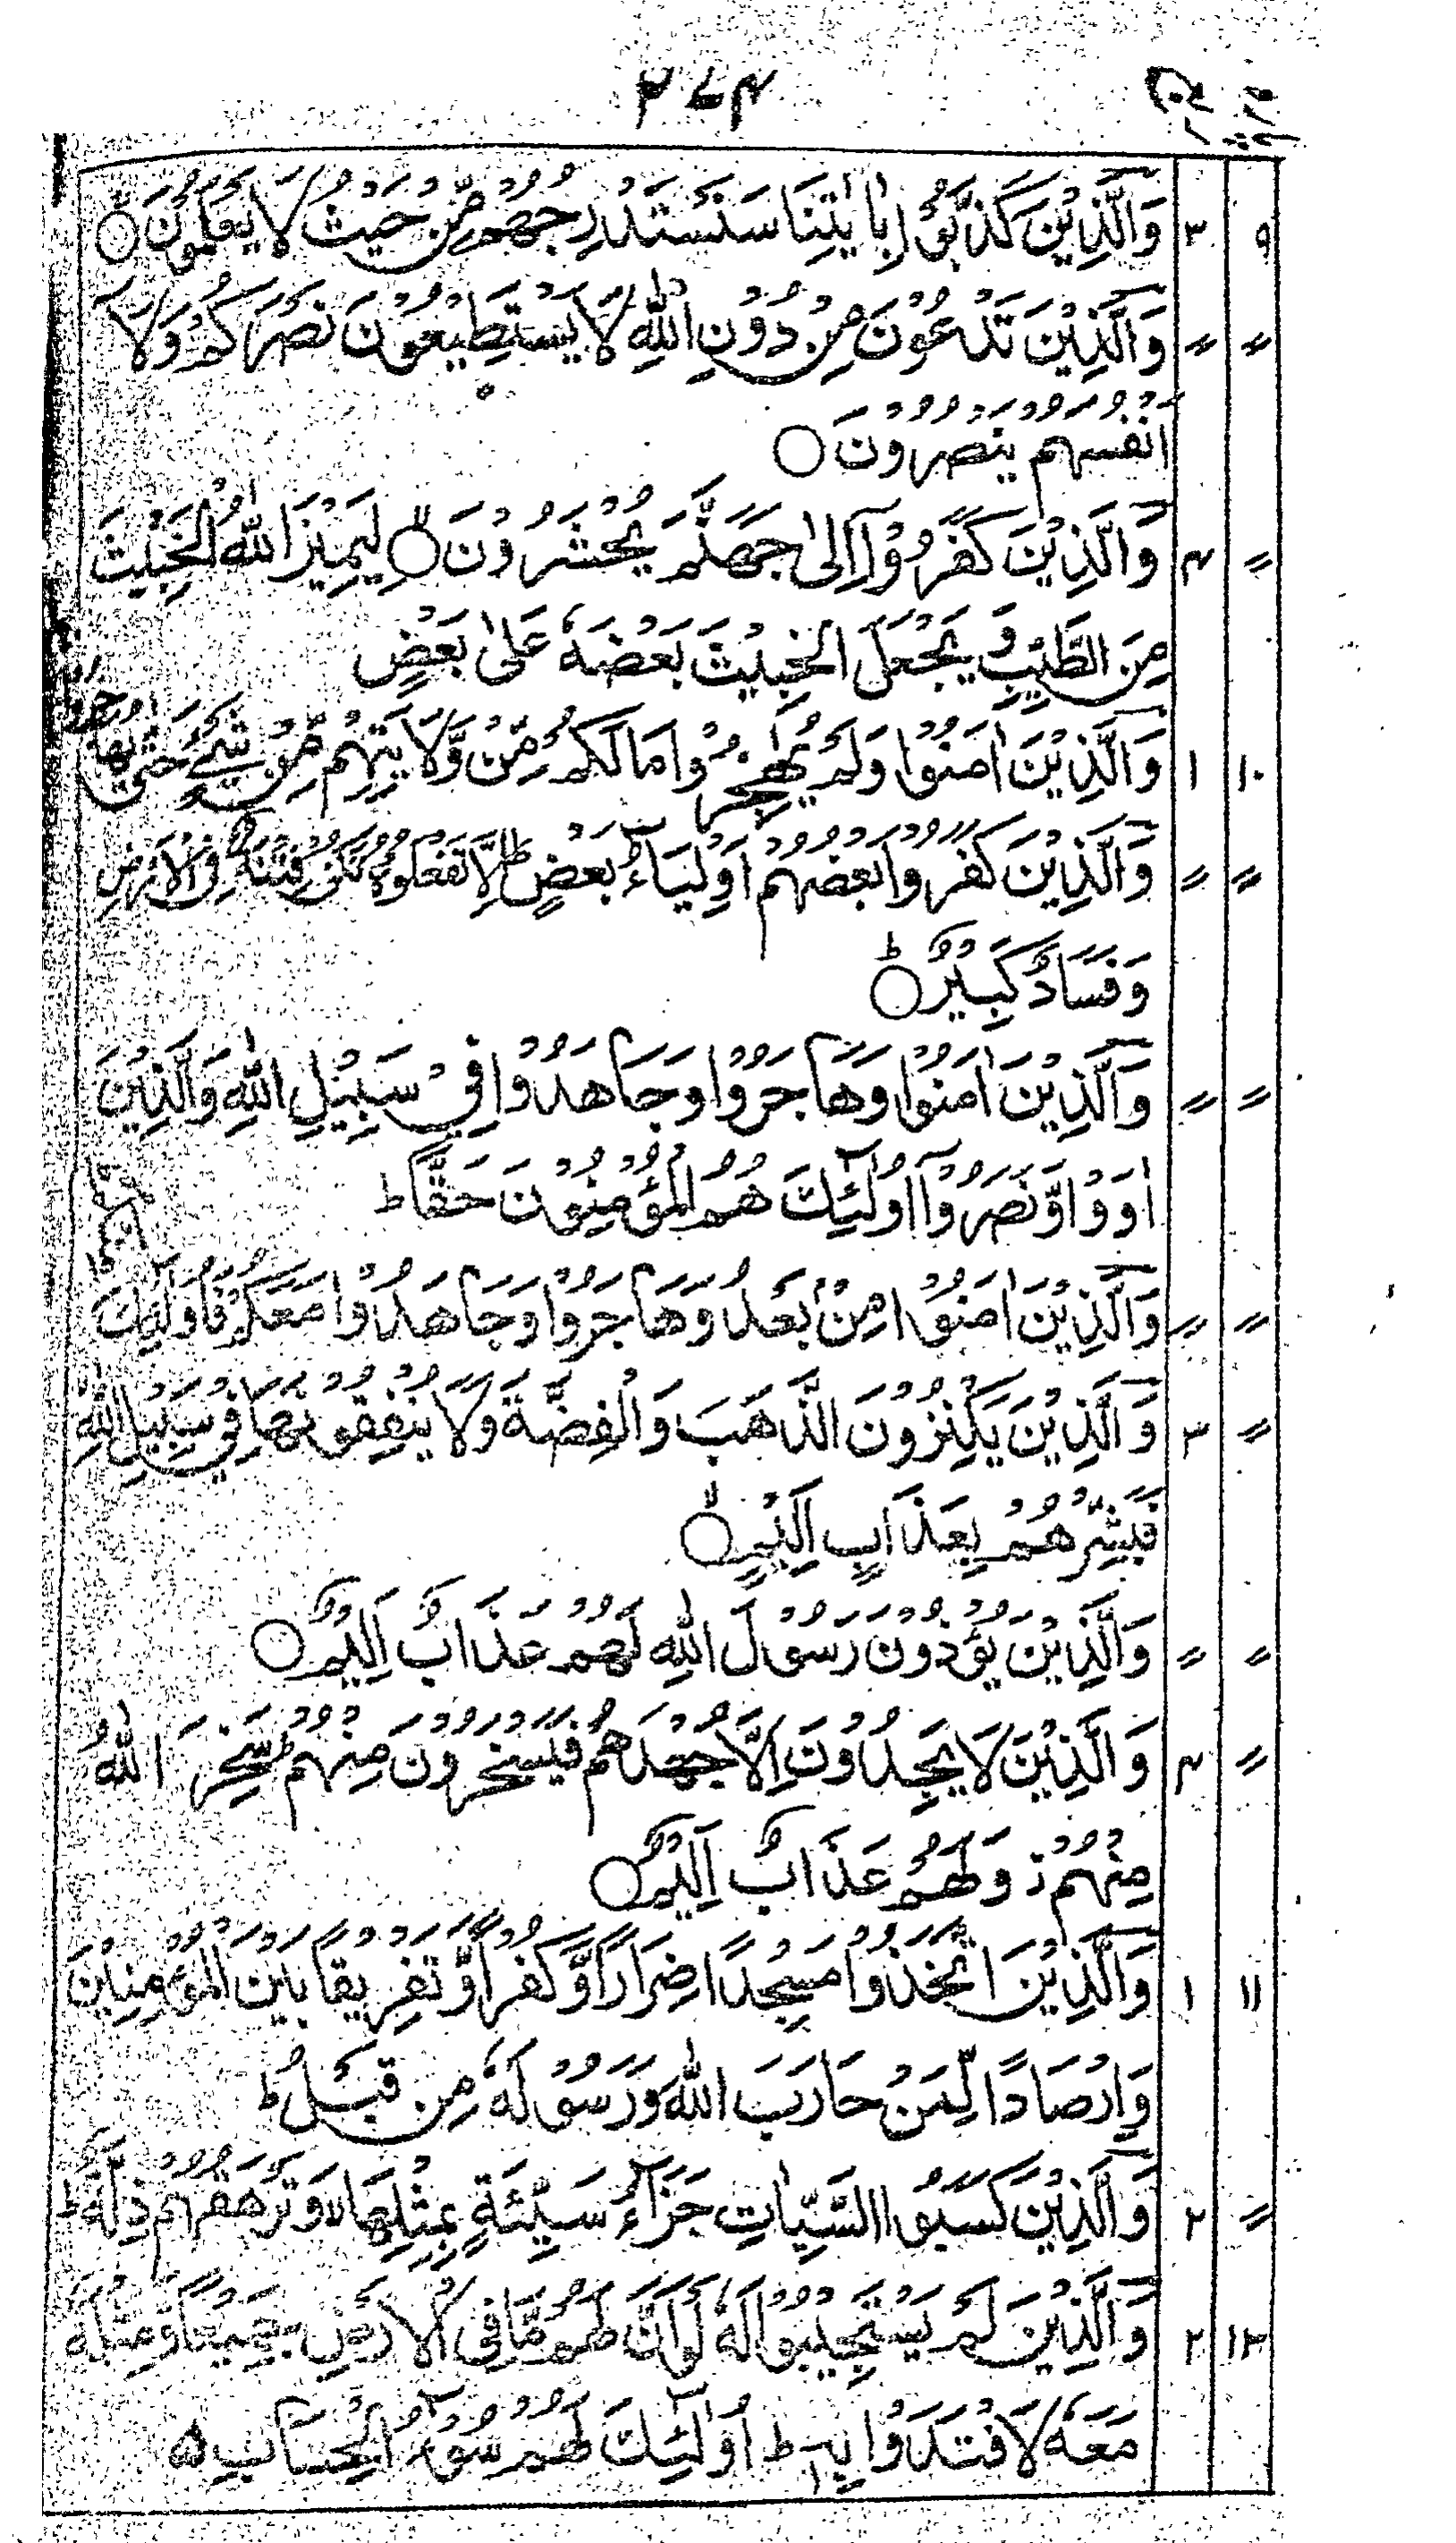 ۳۷۴
۹ ۳ وَالَّذِيْنَ كَذَّبُوْا بِاٰيٰتِنَا سَنَسْتَدْرِجُهُمْ مِّنْ حَيْثُ لَا يَعْلَمُوْنَ ○
〃 〃 وَالَّذِيْنَ تَدْعُوْنَ مِنْ دُوْنِ اللّٰهِ لَا يَسْتَطِيْعُوْنَ نَصْرَكُمْ وَلَا
اَنْفُسَهُمْ يَنْصُرُوْنَ ○
〃 ۴ وَالَّذِيْنَ كَفَرُوْٓا اِلٰى جَهَنَّمَ يُحْشَرُوْنَ ○ لِيَمِيْزَ اللّٰهُ الْخَبِيْثَ
مِنَ الطَّيِّبِ وَيَجْعَلَ الْخَبِيْثَ بَعْضَهٗ عَلٰى بَعْضٍ
۱۰ ۱ وَالَّذِيْنَ اٰمَنُوْا وَلَمْ يُهَاجِرُوْا مَا لَكُمْ مِّنْ وَّلَايَتِهِمْ مِّنْ شَيْءٍ حَتّٰى يُهَاجِرُوْا
〃 〃 وَالَّذِيْنَ كَفَرُوْا بَعْضُهُمْ اَوْلِيَآءُ بَعْضٍ ط اِلَّا تَفْعَلُوْهُ تَكُنْ فِتْنَةٌ فِي الْاَرْضِ
وَفَسَادٌ كَبِيْرٌ ○ ط
〃 〃 وَالَّذِيْنَ اٰمَنُوْا وَهَاجَرُوْا وَجَاهَدُوْا فِيْ سَبِيْلِ اللّٰهِ وَالَّذِيْنَ
اٰوَوْا وَّنَصَرُوْٓا اُولٰٓئِكَ هُمُ الْمُؤْمِنُوْنَ حَقًّا ط
〃 〃 وَالَّذِيْنَ اٰمَنُوْا مِنْۢ بَعْدُ وَهَاجَرُوْا وَجَاهَدُوْا مَعَكُمْ فَاُولٰٓئِكَ
〃 ۳ وَالَّذِيْنَ يَكْنِزُوْنَ الذَّهَبَ وَالْفِضَّةَ وَلَا يُنْفِقُوْنَهَا فِيْ سَبِيْلِ اللّٰهِ
فَبَشِّرْهُمْ بِعَذَابٍ اَلِيْمٍ ○
〃 〃 وَالَّذِيْنَ يُؤْذُوْنَ رَسُوْلَ اللّٰهِ لَهُمْ عَذَابٌ اَلِيْمٌ ○
〃 ۴ وَالَّذِيْنَ لَا يَجِدُوْنَ اِلَّا جُهْدَهُمْ فَيَسْخَرُوْنَ مِنْهُمْ ط سَخِرَ اللّٰهُ
مِنْهُمْ ز وَلَهُمْ عَذَابٌ اَلِيْمٌ ○
۱۱ ۱ وَالَّذِيْنَ اتَّخَذُوْا مَسْجِدًا ضِرَارًا وَّكُفْرًا وَّتَفْرِيْقًا بَيْنَ الْمُؤْمِنِيْنَ
وَاِرْصَادًا لِّمَنْ حَارَبَ اللّٰهَ وَرَسُوْلَهٗ مِنْ قَبْلُ ط
〃 ۲ وَالَّذِيْنَ كَسَبُوا السَّيِّاٰتِ جَزَآءُ سَيِّئَةٍ بِمِثْلِهَا لا وَتَرْهَقُهُمْ ذِلَّةٌ ط
۱۳ ۲ وَالَّذِيْنَ لَمْ يَسْتَجِيْبُوْا لَهٗ لَوْ اَنَّ لَهُمْ مَّا فِى الْاَرْضِ جَمِيْعًا وَّمِثْلَهٗ
مَعَهٗ لَافْتَدَوْا بِهٖ ط اُولٰٓئِكَ لَهُمْ سُوْٓءُ الْحِسَابِ ۵